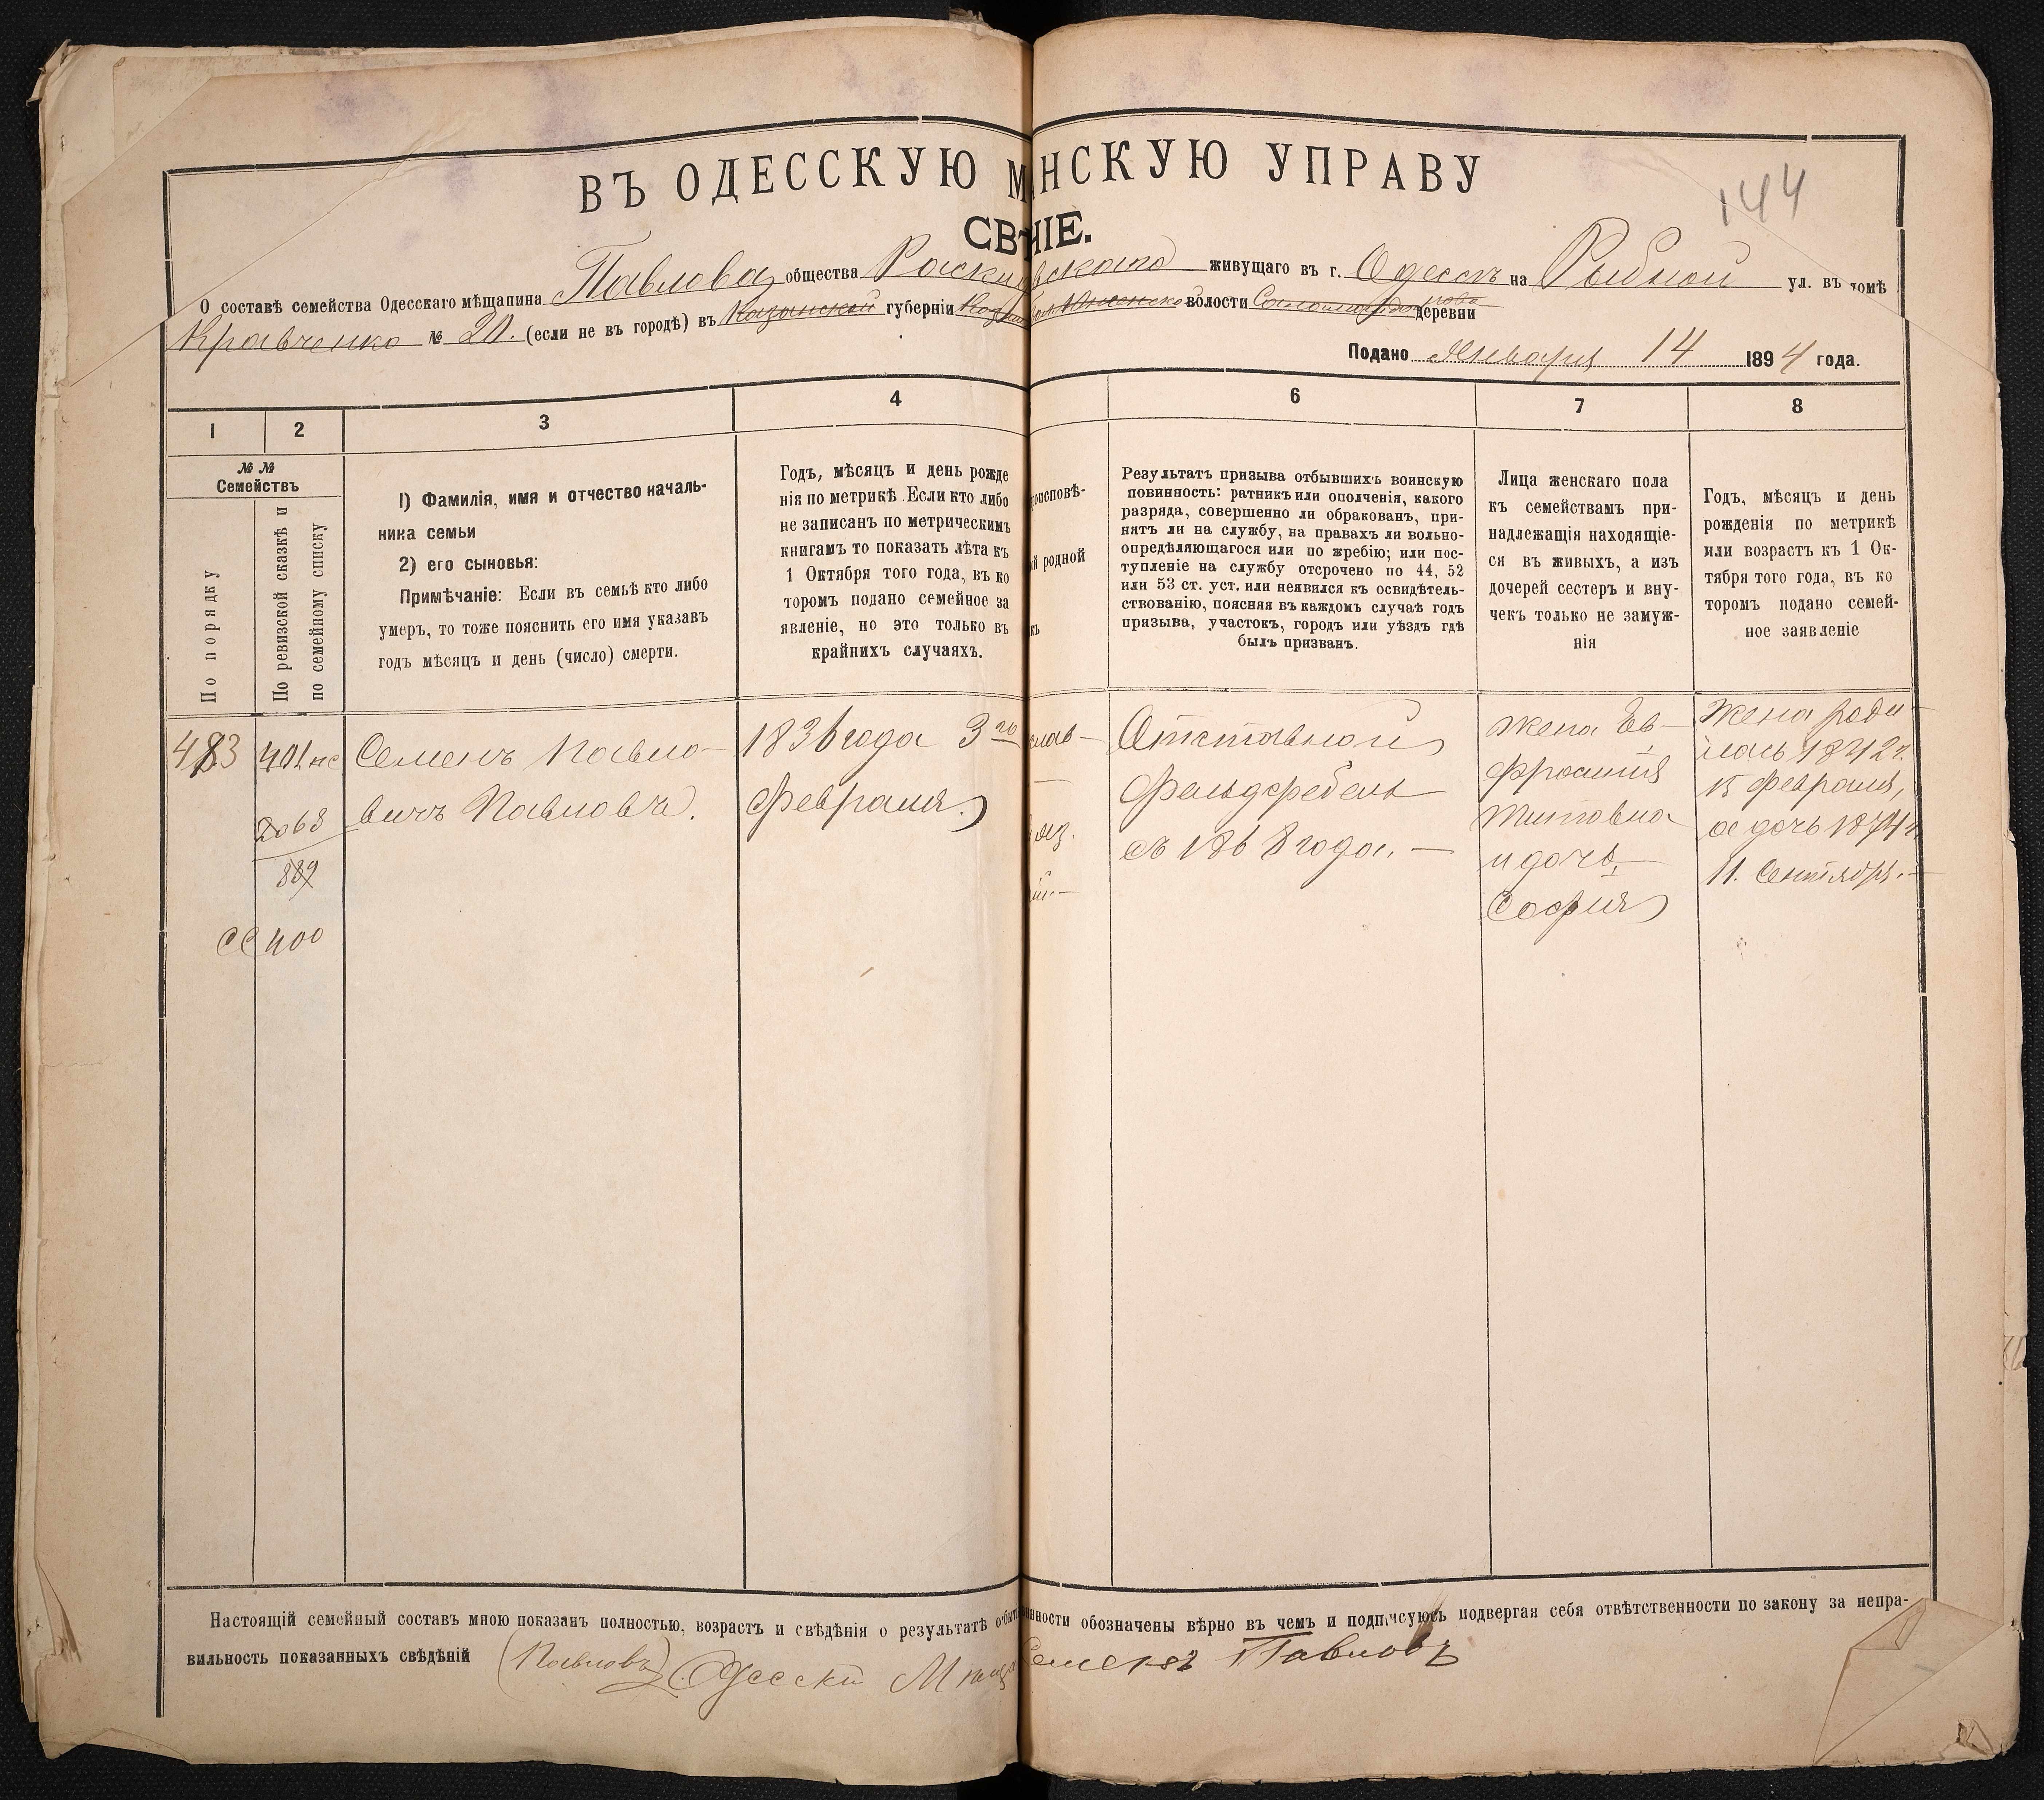 144
ВЪ ОДЕССКУЮ М НСКУЮ УПРАВУ
СВ НІЕ.
О составѣ семейства Одесскаго мѣщанина Павлова общества живущаго въ г. Одессѣ на Рыбной ул. въ домѣ
Кравченко № 20. (если не въ городѣ) въ Казанской губерніи волости деревни
Подано Января 14 1894 года.
1 2 3 4 6 7 8
№ №
Семействъ
По порядку
По ревизской сказкѣ и
по семейному списку
1) Фамилія, имя и отчество началь-
ника семьи
2) его сыновья:
Примѣчаніе: Если въ семьѣ кто либо
умеръ, то тоже пояснить его имя указавъ
годъ мѣсяцъ и день (число) смерти.
Годъ, мѣсяцъ и день рожде
нія по метрикѣ. Если кто либо
не записанъ по метрическимъ
книгамъ то показать лѣта къ
1 Октября того года, въ ко
торомъ подано семейное за
явленіе, но это только въ
крайнихъ случаяхъ.
роисповѣ-
й родной
къ
Результатъ призыва отбывшихъ воинскую
повинность: ратникъ или ополченія, какого
разряда, совершенно ли обракованъ, при-
нятъ ли на службу, на правахъ ли вольно-
опредѣляющагося или по жребію; или пос-
тупленіе на службу отсрочено по 44, 52
или 53 ст. уст. или неявился къ освидѣтель-
ствованію, поясняя въ каждомъ случаѣ годъ
призыва, участокъ, городъ или уѣздъ гдѣ
былъ призванъ.
Лица женскаго пола
къ семействамъ при-
надлежащія находящіе-
ся въ живыхъ, а изъ
дочерей сестеръ и вну-
чекъ только не замуж-
нія
Годъ, мѣсяцъ и день
рожденія по метрикѣ
или возрастъ къ 1 Ок-
тября того года, въ ко
торомъ подано семей-
ное заявленіе
483
401 нс
2068
889
сс 400
Семенъ Павло-
вичъ Павловъ.
1836 года 3го
Февраля.
слав-
яз.
Отставной
Фельдфебель
съ 1868 года. —
Жена Ев-
фросинія
Титовна
и дочь
Софія
Жена роди-
лась 1842 г.
15 Февраля,
а дочь 1874 г.
11. Сентября. —
Настоящій семейный составъ мною показанъ полностью, возрастъ и свѣдѣнія о результатѣ отбыт инности обозначены вѣрно въ чемъ и подписуюсь подвергая себя отвѣтственности по закону за непра-
вильность показанныхъ свѣдѣній (Павловъ) Одесски Мѣщ Семенъ Павловъ